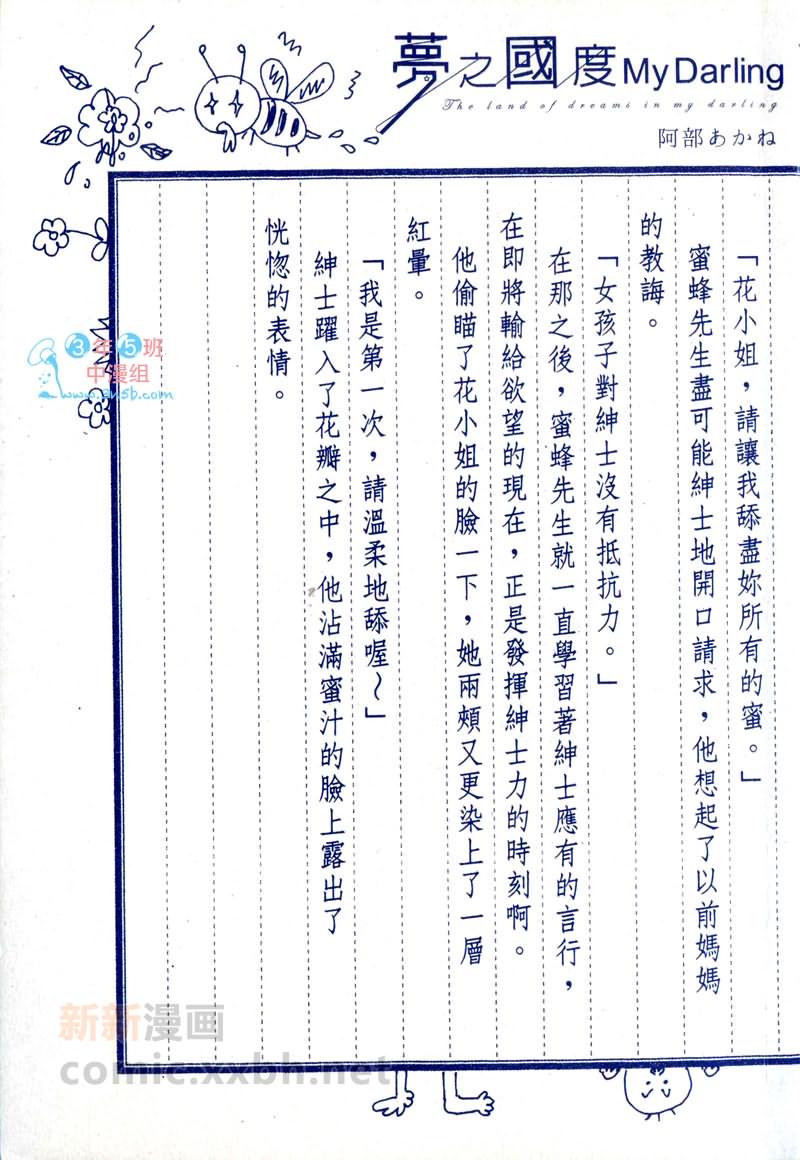 夢之國度My Darling
The land of dreams in my darling
阿部あかね
「花小姐，請讓我舔盡妳所有的蜜。」
蜜蜂先生盡可能紳士地開口請求，他想起了以前媽媽
的教誨。
「女孩子對紳士沒有抵抗力。」
在那之後，蜜蜂先生就一直學習著紳士應有的言行，
在即將輸給欲望的現在，正是發揮紳士力的時刻啊。
他偷瞄了花小姐的臉一下，她兩頰又更染上了一層
紅暈。
「我是第一次，請溫柔地舔喔～」
紳士躍入了花瓣之中，他沾滿蜜汁的臉上露出了
恍惚的表情。
3年5班
中漫组
www.3n5b.com
新新漫画
comic.xxbh.net